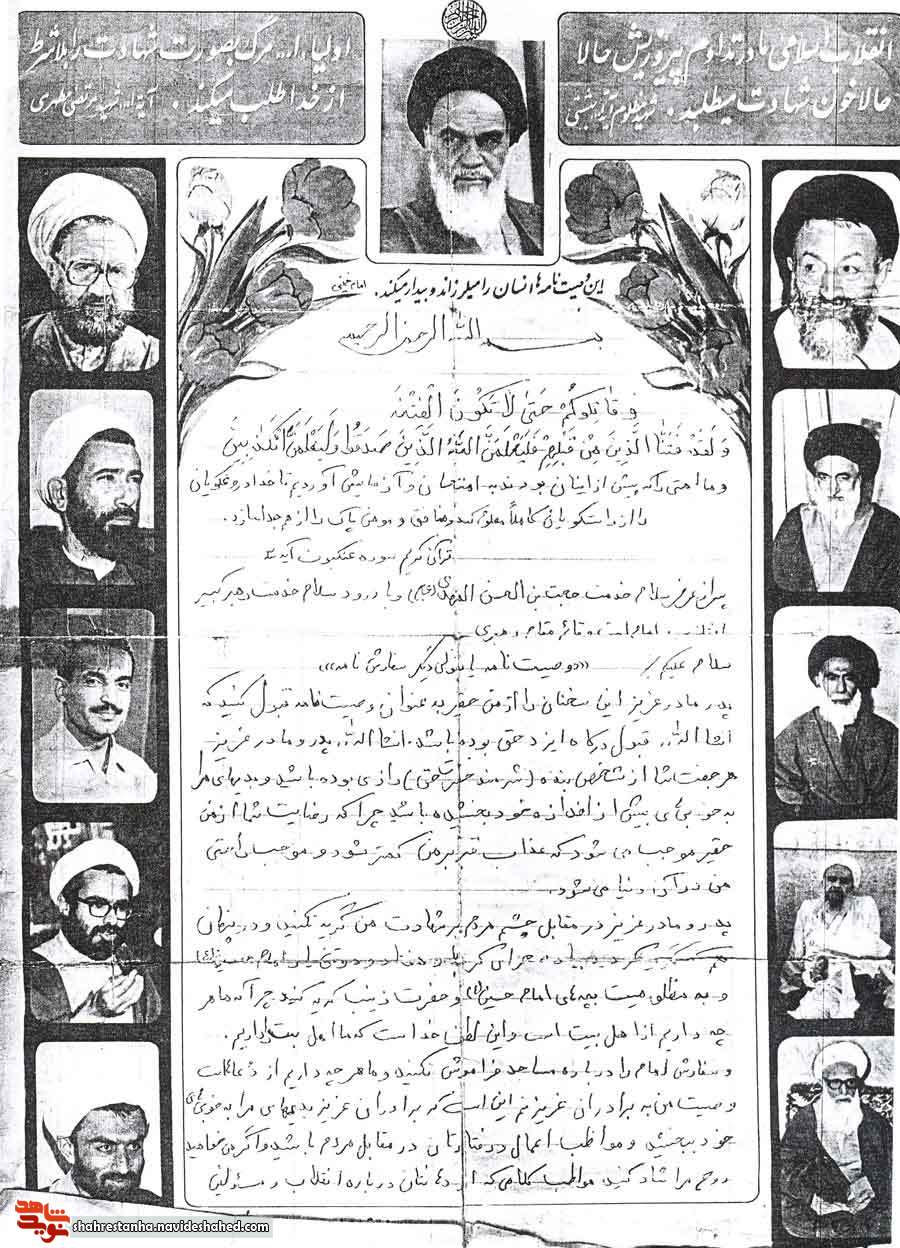 انقلاب اسلامی ما در تداوم پیروزیش حالا
حالا خون شهادت میطلبد. شهید مظلوم آیت‌اله بهشتی
اولیاء اله مرگ بصورت شهادت را
از خدا طلب میکند. آیة اله شهید مرتضی مطهری
این وصیت نامه‌ها انسان را میلرزاند و بیدار میکند. امام خمینی
بسم الله الرحمن الرحیم
و قاتلوکم حتی لا تکون الفتنه
ولقد فتنا الذین من قبلهم فلیعلمن الله الذین صدقوا ولیعلمن الکاذبین
و ما امتی را که پیش از اینان بودند به امتحان و آزمایش آوردیم تا خدا دروغگویان
را از راستگویان کاملاً معلوم کند و منافق و مومن پاک را از هم جدا سازد.
قرآن کریم سوره عنکبوت آیه ۳
پس از عرض سلام خدمت حجت بن الحسن المهدی (عج) و با درود سلام خدمت رهبر کبیر
انقلاب امام امت و قائم مقام رهبری
سلام علیکم ((وصیت نامه یا بقولی دیگر سفارش نامه))
پدر مادر عزیز این سخنان را از من حقیر به عنوان وصیت نامه قبول کنید که
انشاالله قبول درگاه ایزد حق بوده باشد. انشاالله پدر و مادر عزیز
هر جفت شما از شخص بنده (شرمنده حضرت حق) راضی بوده باشید و بدیهای مرا
به خوبی‌های بیش از اندازه خود بخشیده باشید چرا که رضایت شما از من
حقیر موجب می شود که عذاب قبر بر من کمتر شود و موجب راحتی
من در آن دنیا می شود.
پدر و مادر عزیز در مقابل چشم مردم بر شهادت من گریه نکنید و در پنهان
هم گریه بجای گریه بر من امام حسین (ع)
و به مظلومیت بچه‌های امام حسین (ع) و حضرت زینب گریه کنید چرا که ما هر
چه داریم از اهل بیت است و این لطف خداست که ما اهل بیت داریم.
و سفارش امام را درباره مساجد فراموش نکنید و ما هر چه داریم از دعاهاست
وصیت من به برادران عزیزم این است که برادران عزیز بدیهای مرا به خوبی‌های
خود ببخشید و مواظب اعمال و رفتارتان در مقابل مردم باشید و اگر می خواهید
روح مرا شاد کنید مواظب کلامی که از دهانتان درباره انقلاب و مسئولین
نوید شاهد
shahrestanha.navideshahed.com